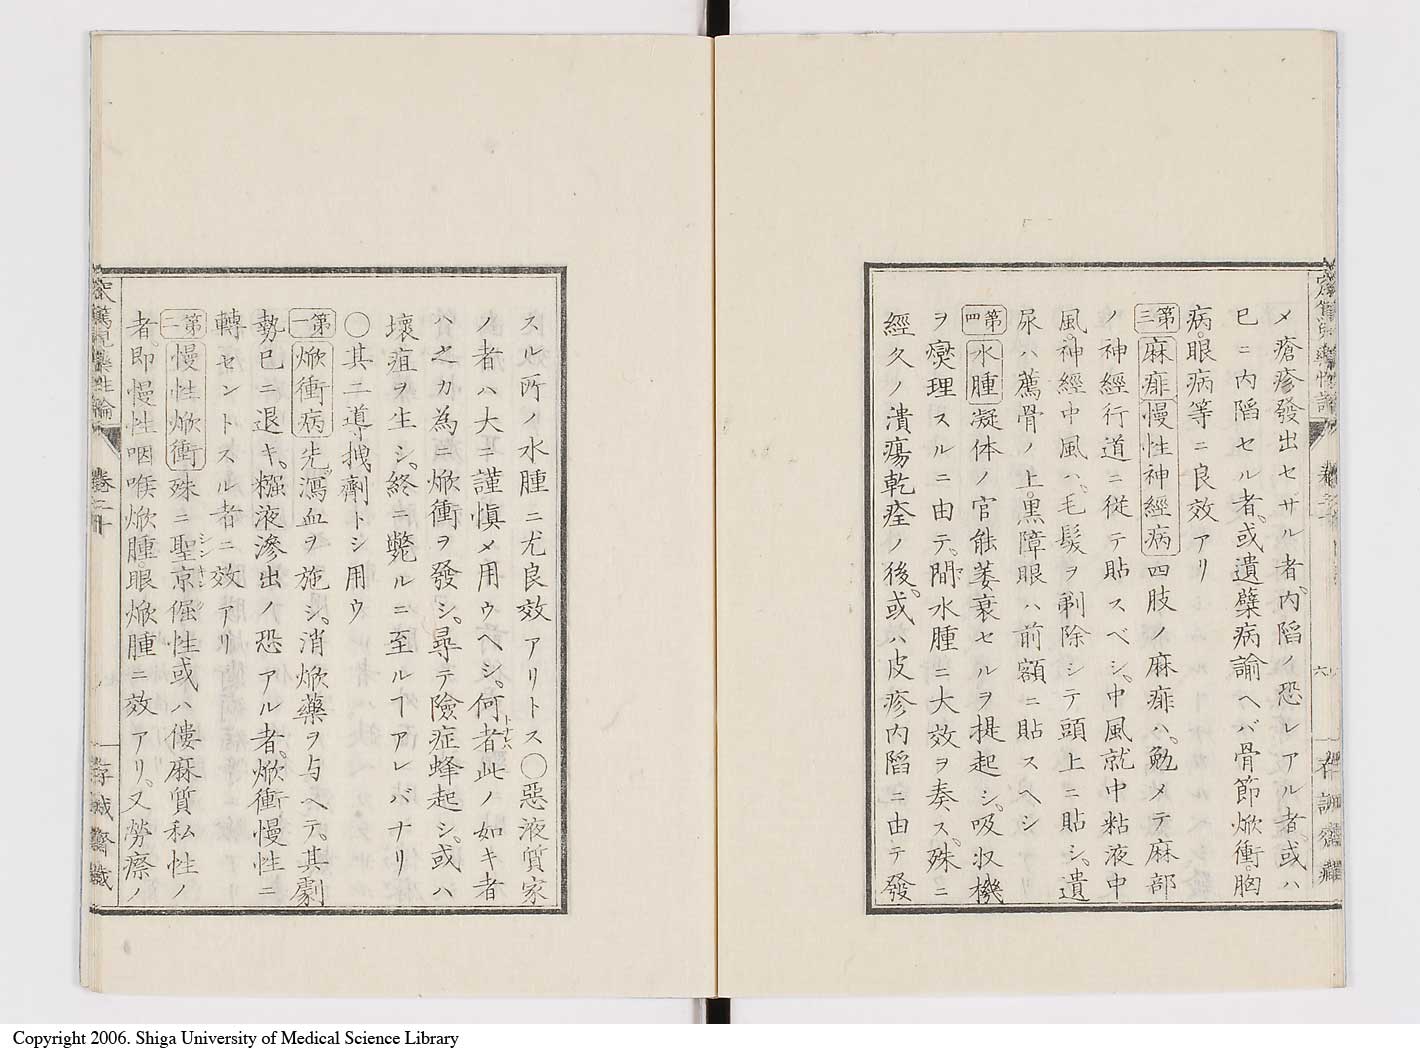 メ瘡疹發出セザル者、内陷ノ恐レアル者、或ハ
已ニ内陷セル者、或遺孼病諭ヘバ骨節焮衝、胸
病、眼病等ニ良效アリ
第三 麻痱 慢性神經病 四肢ノ麻痱ハ、勉メテ麻部
ノ神經行道ニ從テ貼スベシ、中風就中粘液中
風、神經中風ハ、毛髮ヲ剃除シテ頭上ニ貼シ、遺
尿ハ薦骨ノ上、黒障眼ハ前額ニ貼スヘシ
第四 水腫 凝体ノ官能萎衰セルヲ提起シ、吸収機
ヲ爕理スルニ由テ、間水腫ニ大效ヲ奏ス、殊ニ
經久ノ潰瘍乾痊ノ後、或ハ皮疹内陷ニ由テ發
スル所ノ水腫ニ尤良效アリトス〇惡液質家
ノ者ハ大ニ謹愼メ用ウヘシ、何者此ノ如キ者
トナレハ
ハ之カ為ニ焮衝ヲ發シ、尋テ險症蜂起シ、或ハ
壞疽ヲ生シ、終ニ斃ルニ至ルヿアレバナリ
〇其二導拽劑トシ用ウ
第一 焮衝病 先瀉血ヲ施シ、消焮藥ヲ与ヘテ、其劇
勢已ニ退キ、糨液滲出ノ恐アル者、焮衝慢性ニ
轉セントスル者ニ效アリ
第二 慢性焮衝 殊ニ聖京倔性或ハ僂麻質私性ノ
者、即慢性咽喉焮腫、眼焮腫ニ效アリ、又勞瘵ノ
卷二十
存誠齋藏
Copyright 2006. Shiga University of Medical Science Library